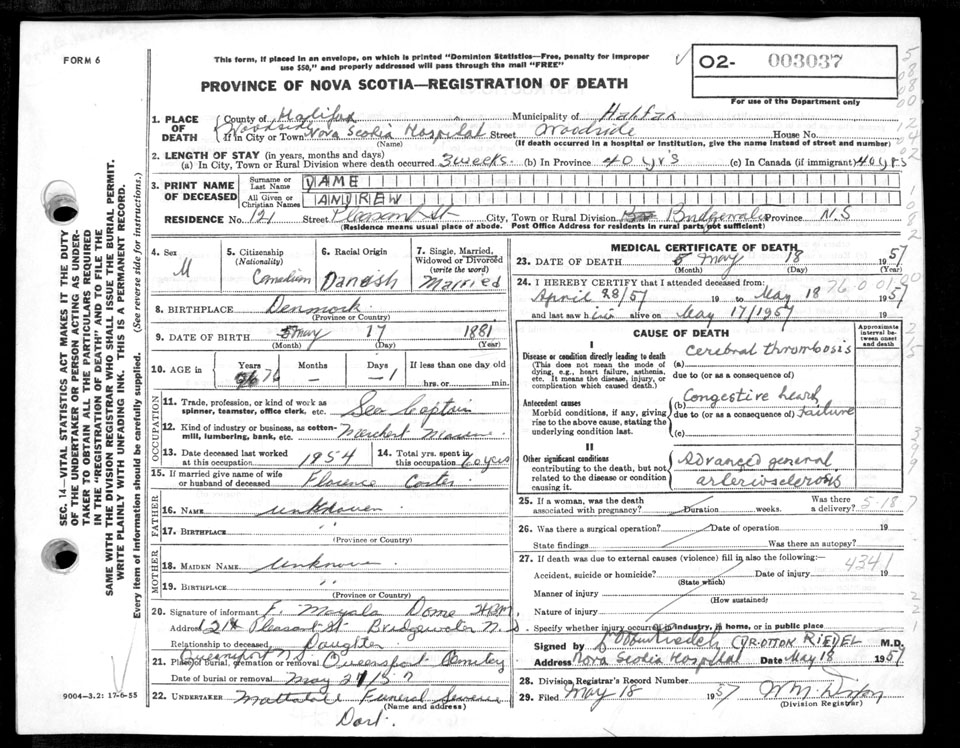 FORM 6
This form, if placed in an envelope, on which is printed "Dominion Statistics—Free, penalty for improper
use $50," and properly addressed will pass through the mail "FREE"
PROVINCE OF NOVA SCOTIA—REGISTRATION OF DEATH
O2- 003037
For use of the Department only
1. PLACE OF DEATH
County of Halifax Municipality of Halifax
Woodside
If in City or Town Nova Scotia Hospital Street Woodside House No.
(Name) (If death occurred in a hospital or institution, give the name instead of street and number)
2. LENGTH OF STAY (in years, months and days)
(a) In City, Town or Rural Division where death occurred 3 weeks. (b) In Province 40 yrs (c) In Canada (if immigrant) 40 yrs
3. PRINT NAME OF DECEASED
Surname or Last Name DAME
All Given or Christian Names ANDREW
RESIDENCE No. 121 Street Pleasant St City, Town or Rural Division Bridgewater Province N.S
(Residence means usual place of abode. Post Office Address for residents in rural parts not sufficient)
4. Sex M
5. Citizenship (Nationality) Canadian
6. Racial Origin Danish
7. Single, Married, Widowed or Divorced (write the word) Married
8. BIRTHPLACE Denmark
(Province or Country)
9. DATE OF BIRTH May 17 1881
(Month) (Day) (Year)
10. AGE in Years 76 Months — Days —1 If less than one day old hrs. or min.
OCCUPATION
11. Trade, profession, or kind of work as spinner, teamster, office clerk, etc. Sea Captain
12. Kind of industry or business, as cotton-mill, lumbering, bank, etc. Merchant Marine
13. Date deceased last worked at this occupation 1954
14. Total yrs. spent in this occupation 60 yrs
15. If married give name of wife or husband of deceased Florence
FATHER
16. Name unknown
17. Birthplace "
(Province or Country)
MOTHER
18. Maiden Name Unknown
19. Birthplace "
(Province or Country)
20. Signature of informant F. Dame
Address 121 Pleasant St Bridgewater N.S
Relationship to deceased Daughter
Queensport N.S
21. Place of burial, cremation or removal Queensport Cemetery
Date of burial or removal May 21/57
22. UNDERTAKER Mattatall Funeral Service
(Name and address)
Dart.
9004-3.2: 17-6-55
SEC. 14—VITAL STATISTICS ACT MAKES IT THE DUTY
OF THE UNDERTAKER OR PERSON ACTING AS UNDER-
TAKER TO OBTAIN ALL THE PARTICULARS REQUIRED
IN THE "REGISTRATION OF DEATH" AND TO FILE THE
SAME WITH THE DIVISION REGISTRAR WHO SHALL ISSUE THE BURIAL PERMIT.
WRITE PLAINLY WITH UNFADING INK. THIS IS A PERMANENT RECORD.
Every item of information should be carefully supplied. (See reverse side for instructions.)
MEDICAL CERTIFICATE OF DEATH
23. DATE OF DEATH May 18 1957
(Month) (Day) (Year)
24. I HEREBY CERTIFY that I attended deceased from:
April 28/57 19 to May 18 1957
and last saw him alive on May 17/1957
76-0 01 00
CAUSE OF DEATH
Approximate interval between onset and death
I
Disease or condition directly leading to death
(This does not mean the mode of dying, e.g., heart failure, asthenia, etc. It means the disease, injury, or complication which caused death.)
(a) Cerebral thrombosis
due to (or as a consequence of)
Antecedent causes
Morbid conditions, if any, giving rise to the above cause, stating the underlying condition last.
(b) Congestive heart
due to (or as a consequence of) Failure
(c)
II
Other significant conditions
contributing to the death, but not related to the disease or condition causing it.
Advanced general
arteriosclerosis
25. If a woman, was the death associated with pregnancy? Duration weeks. Was there a delivery?
5-18 7
26. Was there a surgical operation? Date of operation 19
State findings Was there an autopsy?
27. If death was due to external causes (violence) fill in also the following:—
4341
Accident, suicide or homicide? Date of injury 19
(State which)
Manner of injury
(How sustained)
Nature of injury
Specify whether injury occurred in industry, in home, or in public place
Signed by DR. OTTON RIEDEL M.D.
Address Nova Scotia Hospital Date May 18 1957
28. Division Registrar's Record Number
29. Filed May 18 1957
(Division Registrar)